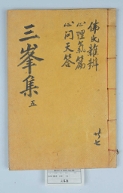 佛氏雜辨
心理氣篇
心問天答
三峯集 五
共七